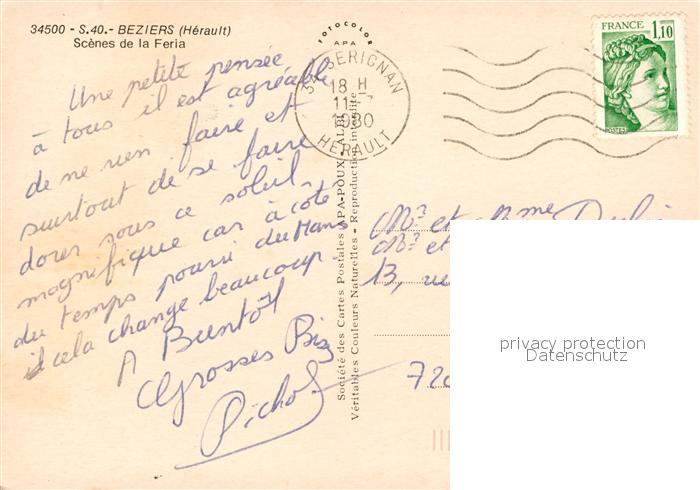 34500 - S.40.- BEZIERS (Hérault)
Scènes de la Feria
FOTOCOLOR
APA
Une petite pensée
à tous il est agréable
de ne rien faire et
surtout de se faire
dorer sous ce soleil
magnifique car à côté
du temps pourri du Mans
il cela change beaucoup.
A Bientôt
Grosses Biz
34 SERIGNAN
18 H
11
1980
HERAULT
FRANCE
1,10
POSTES
Société des Cartes Postales APA-POUX - ALBI
Véritables Couleurs Naturelles - Reproduction interdite
Mr et Mme
Mr et
13,
720
privacy protection
Datenschutz